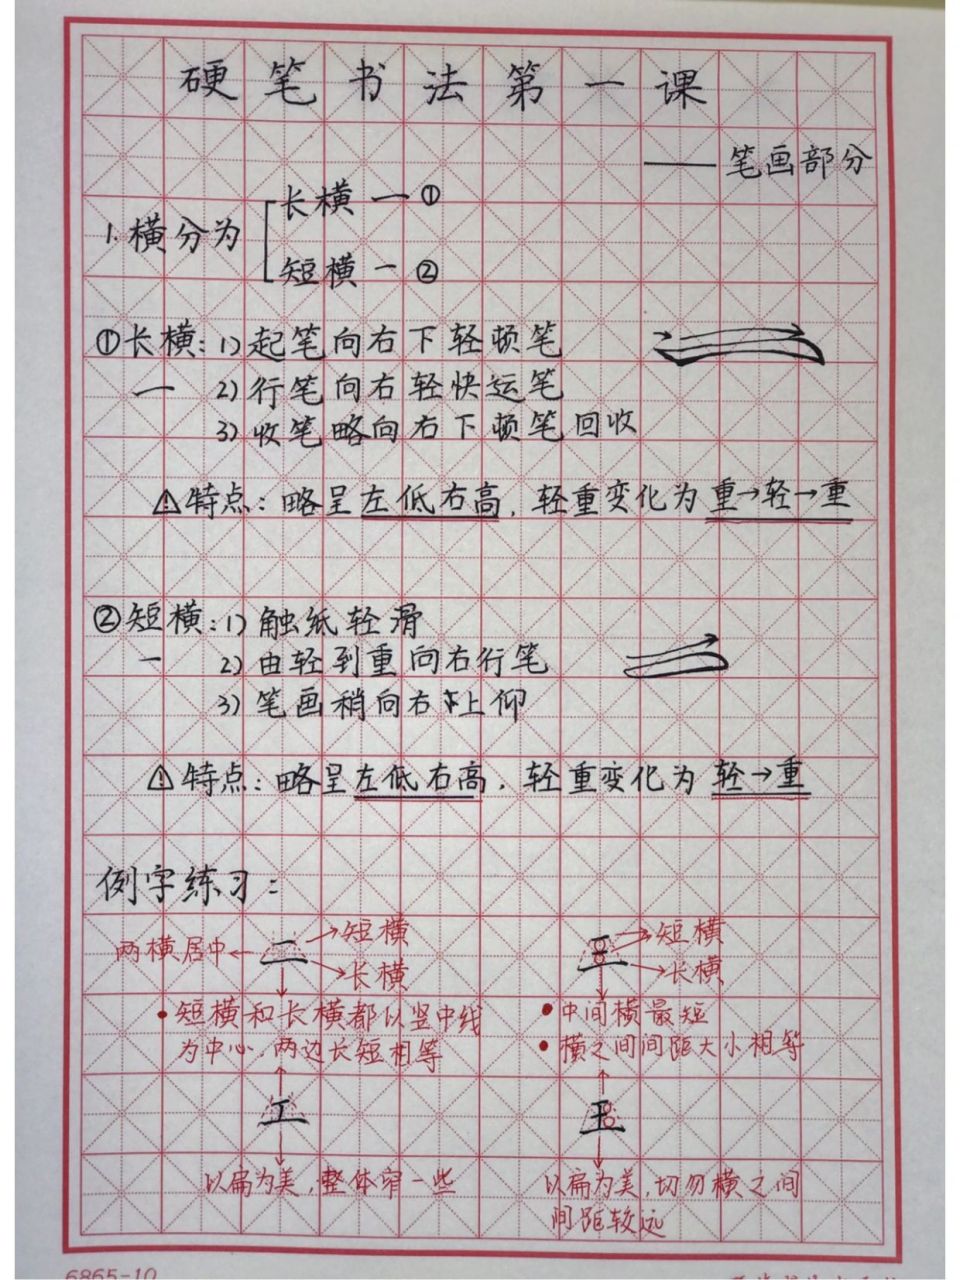 硬笔书法第一课
——笔画部分
1.横分为
长横 一 ①
短横 一 ②
①长横:1)起笔向右下轻顿笔
一 2)行笔向右轻快运笔
3)收笔略向右下顿笔回收
⚠特点:略呈左低右高,轻重变化为重→轻→重
②短横:1)触纸轻滑
一 2)由轻到重向右行笔
3)笔画稍向右上仰
⚠特点:略呈左低右高,轻重变化为轻→重
例字练习:
两横居中←二→短横
→长横
三→短横
→长横
•短横和长横都以竖中线
为中心,两边长短相等
•中间横最短
•横之间间距大小相等
工
王
以扁为美,整体窄一些
以扁为美,切勿横之间
间距较远
6865-10